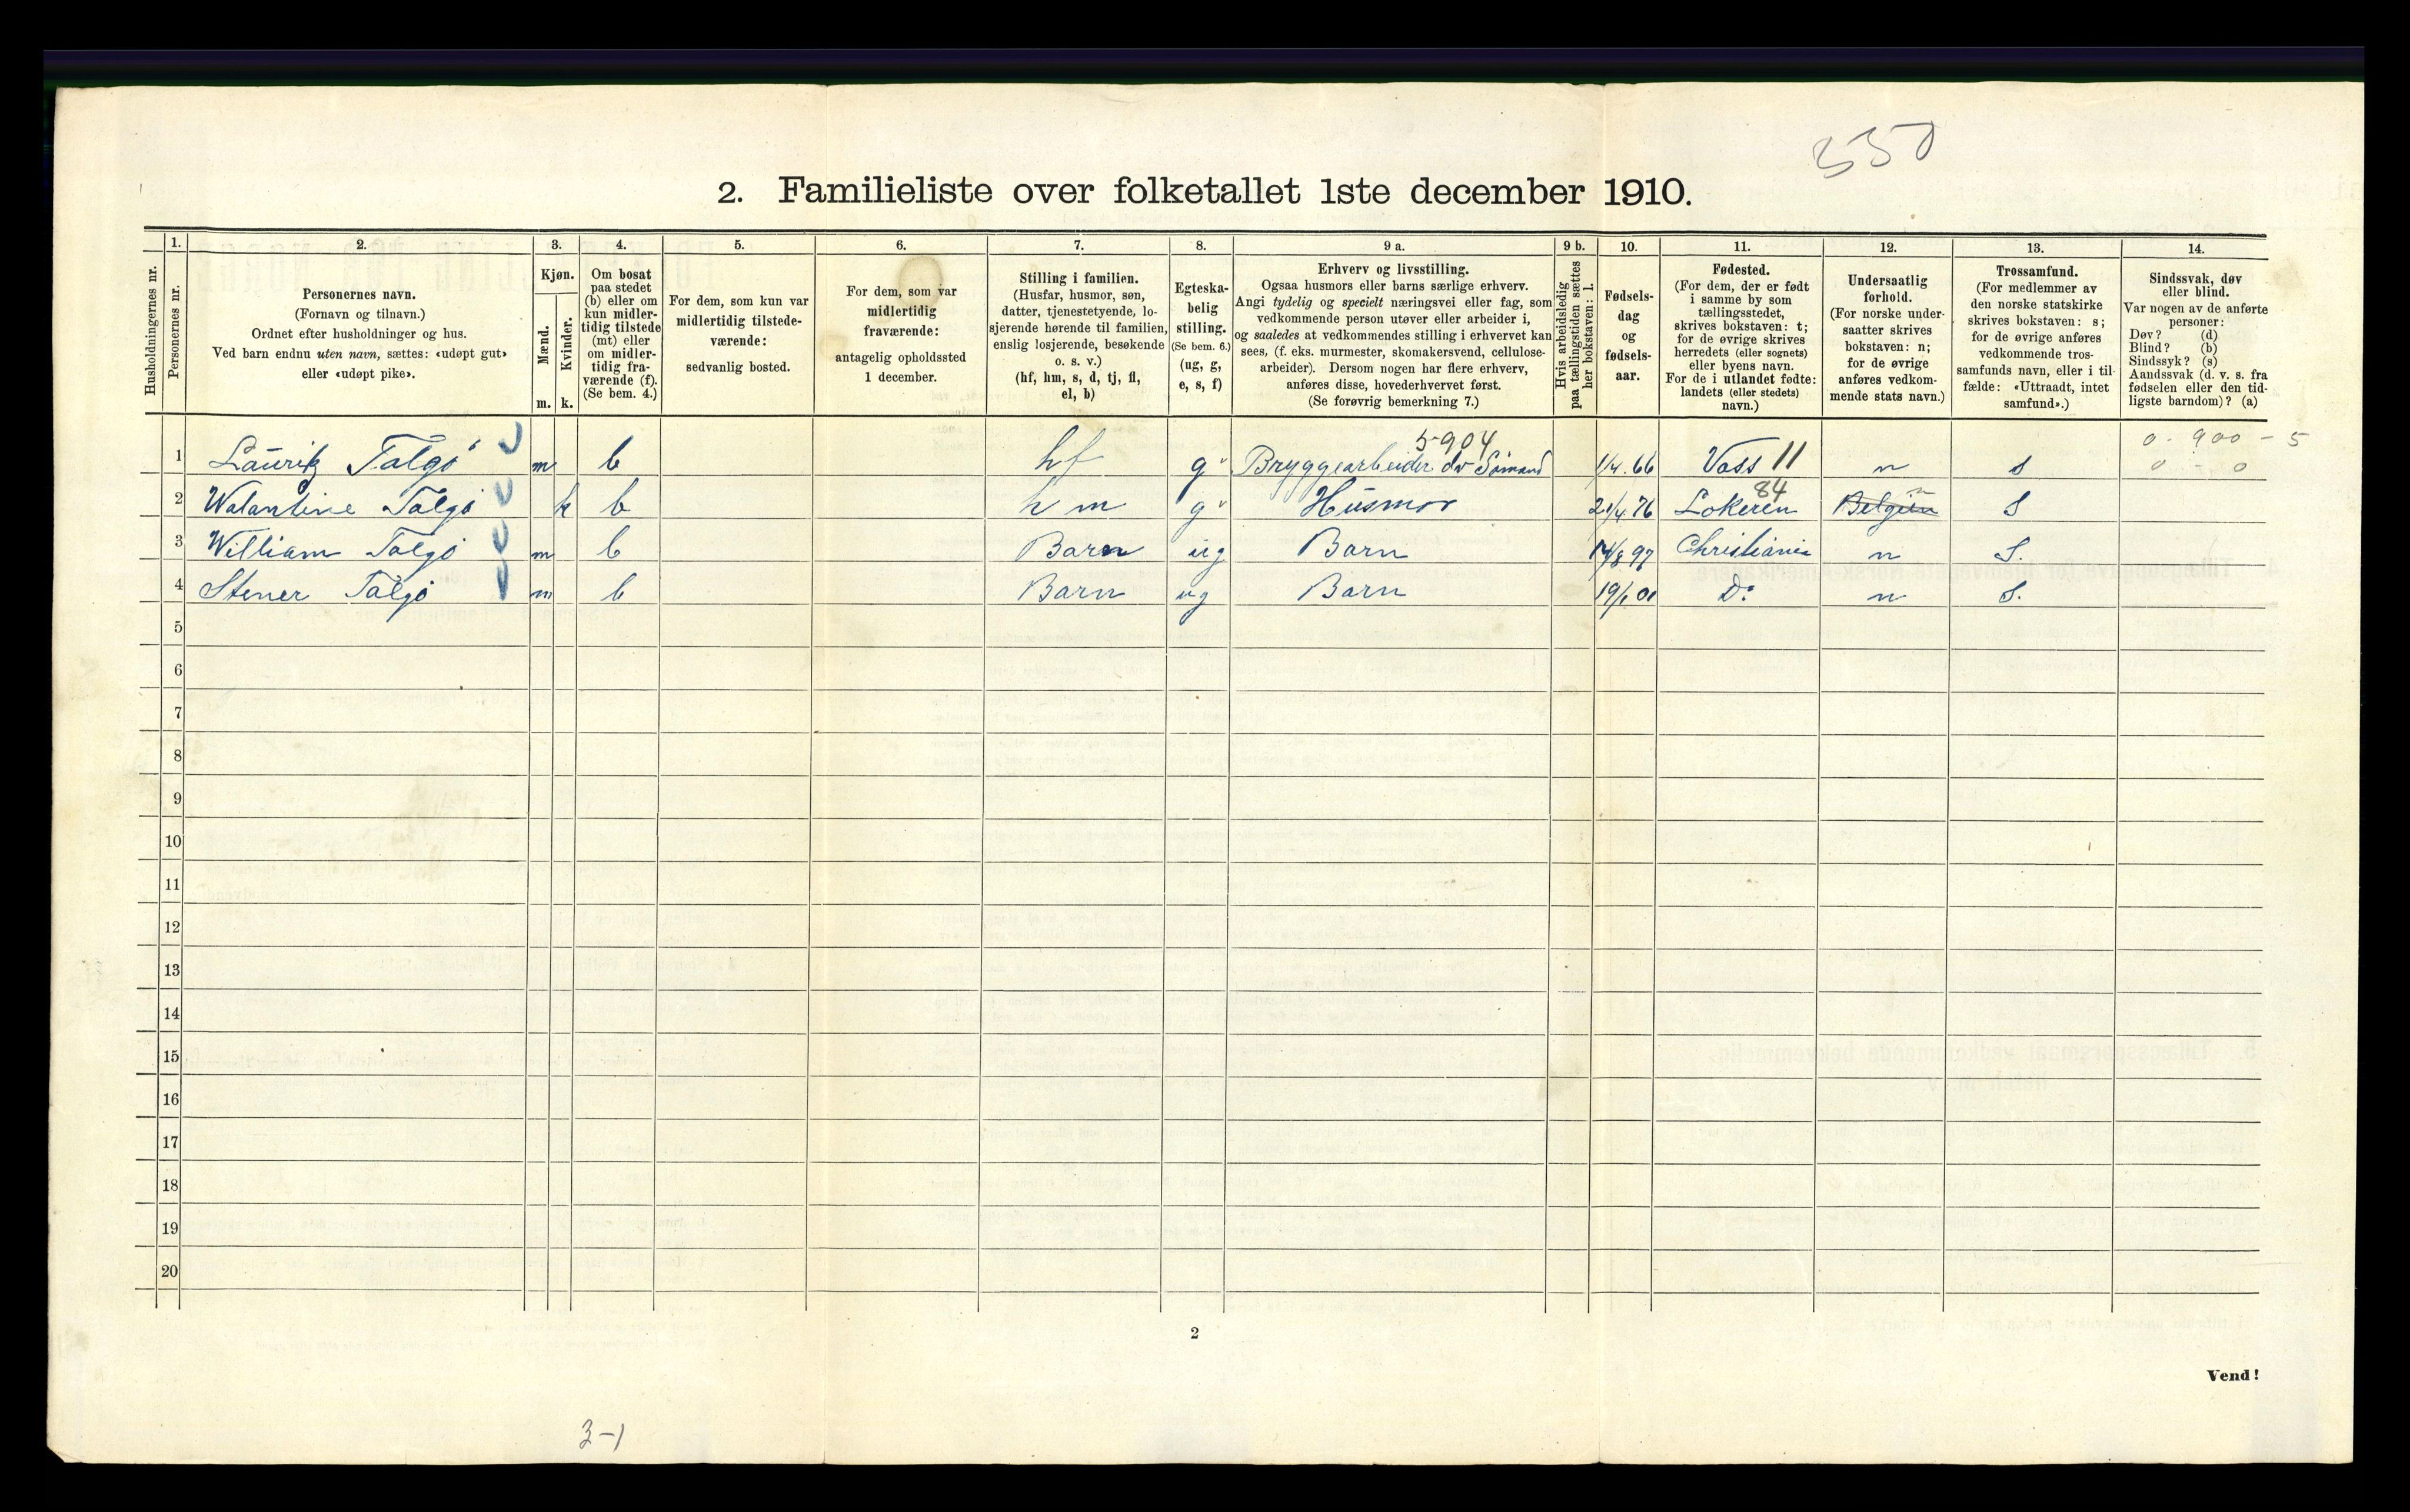 550
2. Familieliste over folketallet 1ste december 1910.
Husholdningernes nr.
1.
Personernes nr.
2.
Personernes navn.
(Fornavn og tilnavn.)
Ordnet efter husholdninger og hus.
Ved barn endnu uten navn, sættes: «udøpt gut»
eller «udøpt pike».
3.
Kjøn.
Mænd.
Kvinder.
m. k.
4.
Om bosat
paa stedet
(b) eller om
kun midler-
tidig tilstede
(mt) eller
om midler-
tidig fra-
værende (f).
(Se bem. 4.)
5.
For dem, som kun var
midlertidig tilstede-
værende:
sedvanlig bosted.
6.
For dem, som var
midlertidig
fraværende:
antagelig opholdssted
1 december.
7.
Stilling i familien.
(Husfar, husmor, søn,
datter, tjenestetyende, lo-
sjerende hørende til familien,
enslig losjerende, besøkende
o. s. v.)
(hf, hm, s, d, tj, fl,
el, b)
8.
Egteska-
belig
stilling.
(Se bem. 6.)
(ug, g,
e, s, f)
9 a.
Erhverv og livsstilling.
Ogsaa husmors eller barns særlige erhverv.
Angi tydelig og specielt næringsvei eller fag, som
vedkommende person utøver eller arbeider i,
og saaledes at vedkommendes stilling i erhvervet kan
sees, (f. eks. murmester, skomakersvend, cellulose-
arbeider). Dersom nogen har flere erhverv,
anføres disse, hovederhvervet først.
(Se forøvrig bemerkning 7.)
9 b.
Hvis arbeidsledig
paa tællingstiden sættes
her bokstaven: l.
10.
Fødsels-
dag
og
fødsels-
aar.
11.
Fødested.
(For dem, der er født
i samme by som
tællingsstedet,
skrives bokstaven: t;
for de øvrige skrives
herredets (eller sognets)
eller byens navn.
For de i utlandet fødte:
landets (eller stedets)
navn.)
12.
Undersaatlig
forhold.
(For norske under-
saatter skrives
bokstaven: n;
for de øvrige
anføres vedkom-
mende stats navn.)
13.
Trossamfund.
(For medlemmer av
den norske statskirke
skrives bokstaven: s;
for de øvrige anføres
vedkommende tros-
samfunds navn, eller i til-
fælde: «Uttraadt, intet
samfund».)
14.
Sindssvak, døv
eller blind.
Var nogen av de anførte
personer:
Døv? (d)
Blind? (b)
Sindssyk? (s)
Aandssvak (d. v. s. fra
fødselen eller den tid-
ligste barndom)? (a)
5-904 0 - 900 - 5
1 Lauritz Talgö m b hf g Bryggearbeider dv Sömand 1/4.66 Voss 11 n s 0 - 0
84 n
2 Walantine Talgö k b hm g Husmor 21/4 76 Lokeren Belgien S
3 William Talgö m b Barn ug Barn 14/8 97 Christiania n S.
4 Stener Talgö m b Barn ug Barn 19/1 01 Do n S.
5
6
7
8
9
10
11
12
13
14
15
16
17
18
19
20
2
Vend!
3-1